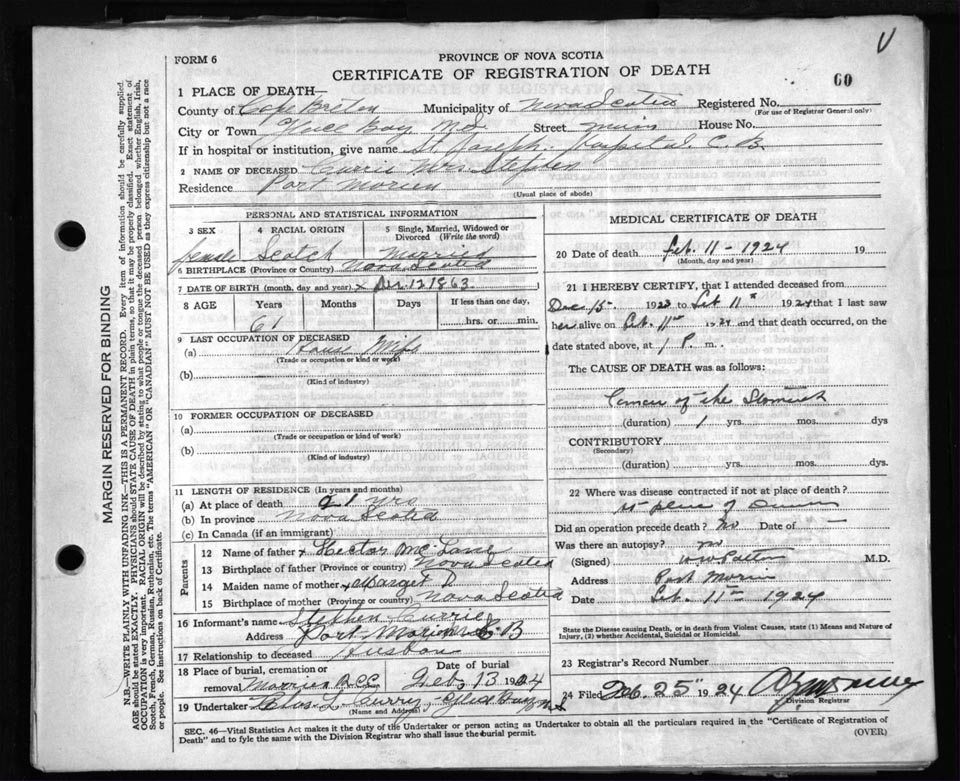 FORM 6
PROVINCE OF NOVA SCOTIA
CERTIFICATE OF REGISTRATION OF DEATH
V
60
1 PLACE OF DEATH—
County of Cape Breton Municipality of Nova Scotia Registered No.
(For use of Registrar General only)
City or Town Glace Bay, N.S. Street Main House No.
If in hospital or institution, give name St Joseph Hospital. C.B.
2 NAME OF DECEASED Currie Mrs Stephen
Residence Port Morien
(Usual place of abode)
PERSONAL AND STATISTICAL INFORMATION
3 SEX
4 RACIAL ORIGIN
5 Single, Married, Widowed or Divorced (Write the word)
female Scotch Married
6 BIRTHPLACE (Province or Country) Nova Scotia
7 DATE OF BIRTH (month, day and year) x 12 1863
8 AGE Years Months Days If less than one day
61 hrs. or min.
9 LAST OCCUPATION OF DECEASED
(a) House Wife
(Trade or occupation or kind of work)
(b)
(Kind of industry)
10 FORMER OCCUPATION OF DECEASED
(a)
(Trade or occupation or kind of work)
(b)
(Kind of industry)
11 LENGTH OF RESIDENCE (In years and months)
(a) At place of death yrs
(b) In province Nova Scotia
(c) In Canada (if an immigrant)
Parents
12 Name of father x Hector Mc
13 Birthplace of father (Province or country) Nova Scotia
14 Maiden name of mother x Marget D
15 Birthplace of mother (Province or country) Nova Scotia
16 Informant's name Stephen Currie
Address Port Morien C B
17 Relationship to deceased Husban
18 Place of burial, cremation or removal Morrien R.C.C. Date of burial Feb 13 1924
19 Undertaker Chas L Curry, Glace Bay N.S
(Name and Address)
MEDICAL CERTIFICATE OF DEATH
20 Date of death Feb. 11 - 1924 19
(Month, day and year)
21 I HEREBY CERTIFY, that I attended deceased from
Dec 15 1923 to Feb 11th 1924 that I last saw
her alive on Feb. 11th 1924 and that death occurred, on the
date stated above, at 1 P. m.
The CAUSE OF DEATH was as follows:
Cancer of the Stomach
(duration) 1 yrs. mos. dys
CONTRIBUTORY
(Secondary)
(duration) yrs. mos. dys.
22 Where was disease contracted if not at place of death?
at place of
Did an operation precede death? No Date of —
Was there an autopsy? no
(Signed) Patton M.D.
Address Port Morien
Date Feb. 11th 1924
State the Disease causing Death, or in death from Violent Causes, state (1) Means and Nature of Injury, (2) whether Accidental, Suicidal or Homicidal.
23 Registrar's Record Number
24 Filed Feb. 25th 1924
Division Registrar
SEC. 46—Vital Statistics Act makes it the duty of the Undertaker or person acting as Undertaker to obtain all the particulars required in the "Certificate of Registration of
Death" and to fyle the same with the Division Registrar who shall issue the burial permit.
(OVER)
MARGIN RESERVED FOR BINDING
N.B.—WRITE PLAINLY WITH UNFADING INK—THIS IS A PERMANENT RECORD. Every item of information should be carefully supplied.
AGE should be stated EXACTLY. PHYSICIANS should STATE CAUSE OF DEATH in plain terms, so that it may be properly classified. Exact statement of
OCCUPATION is very important. RACIAL ORIGIN will be described by stating to what people or tongue the deceased person belonged whether English, Irish,
Scotch, French, German, Russian, Ruthenian, etc. The terms "AMERICAN" OR "CANADIAN" MUST NOT BE USED as they express citizenship but not a race
or people. See instructions on back of Certificate.